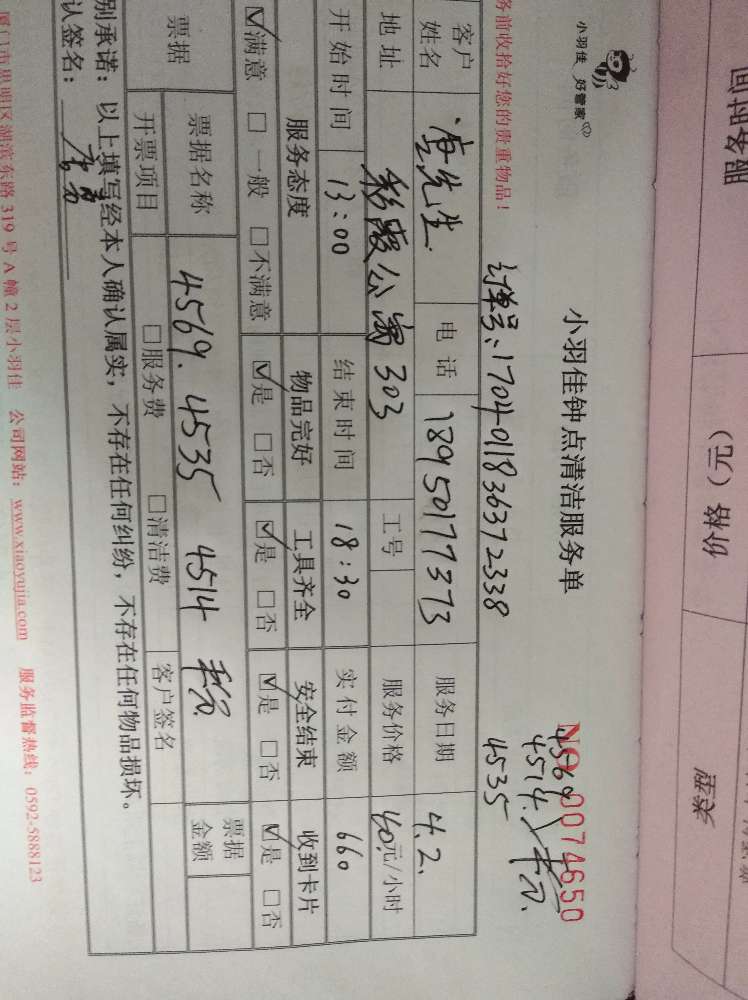 小羽佳 好管家
小羽佳钟点清洁服务单
NO 0074650
4569
4514.
4535
务前收拾好您的贵重物品！
订单号：1704011836372338
客户姓名 先生 电话 18950177373 服务日期 4.2.
地址 公寓303 工号 服务价格 40元/小时
开始时间 13:00 结束时间 18:30 实付金额 660
服务态度 物品完好 工具齐全 安全结束 收到卡片
☑满意 □一般 □不满意 ☑是 □否 ☑是 □否 ☑是 □否 ☑是 □否
票据 票据名称 4569. 4535 4514 票据金额
开票项目 □服务费 □清洁费 客户签名
别承诺：以上填写经本人确认属实，不存在任何纠纷，不存在任何物品损坏。
认签名：
厦门市思明区湖滨东路319号A幢2层小羽佳 公司网站：www.xiaoyujia.com 服务监督热线：0592-5888123
服务时间
价格（元）
类型